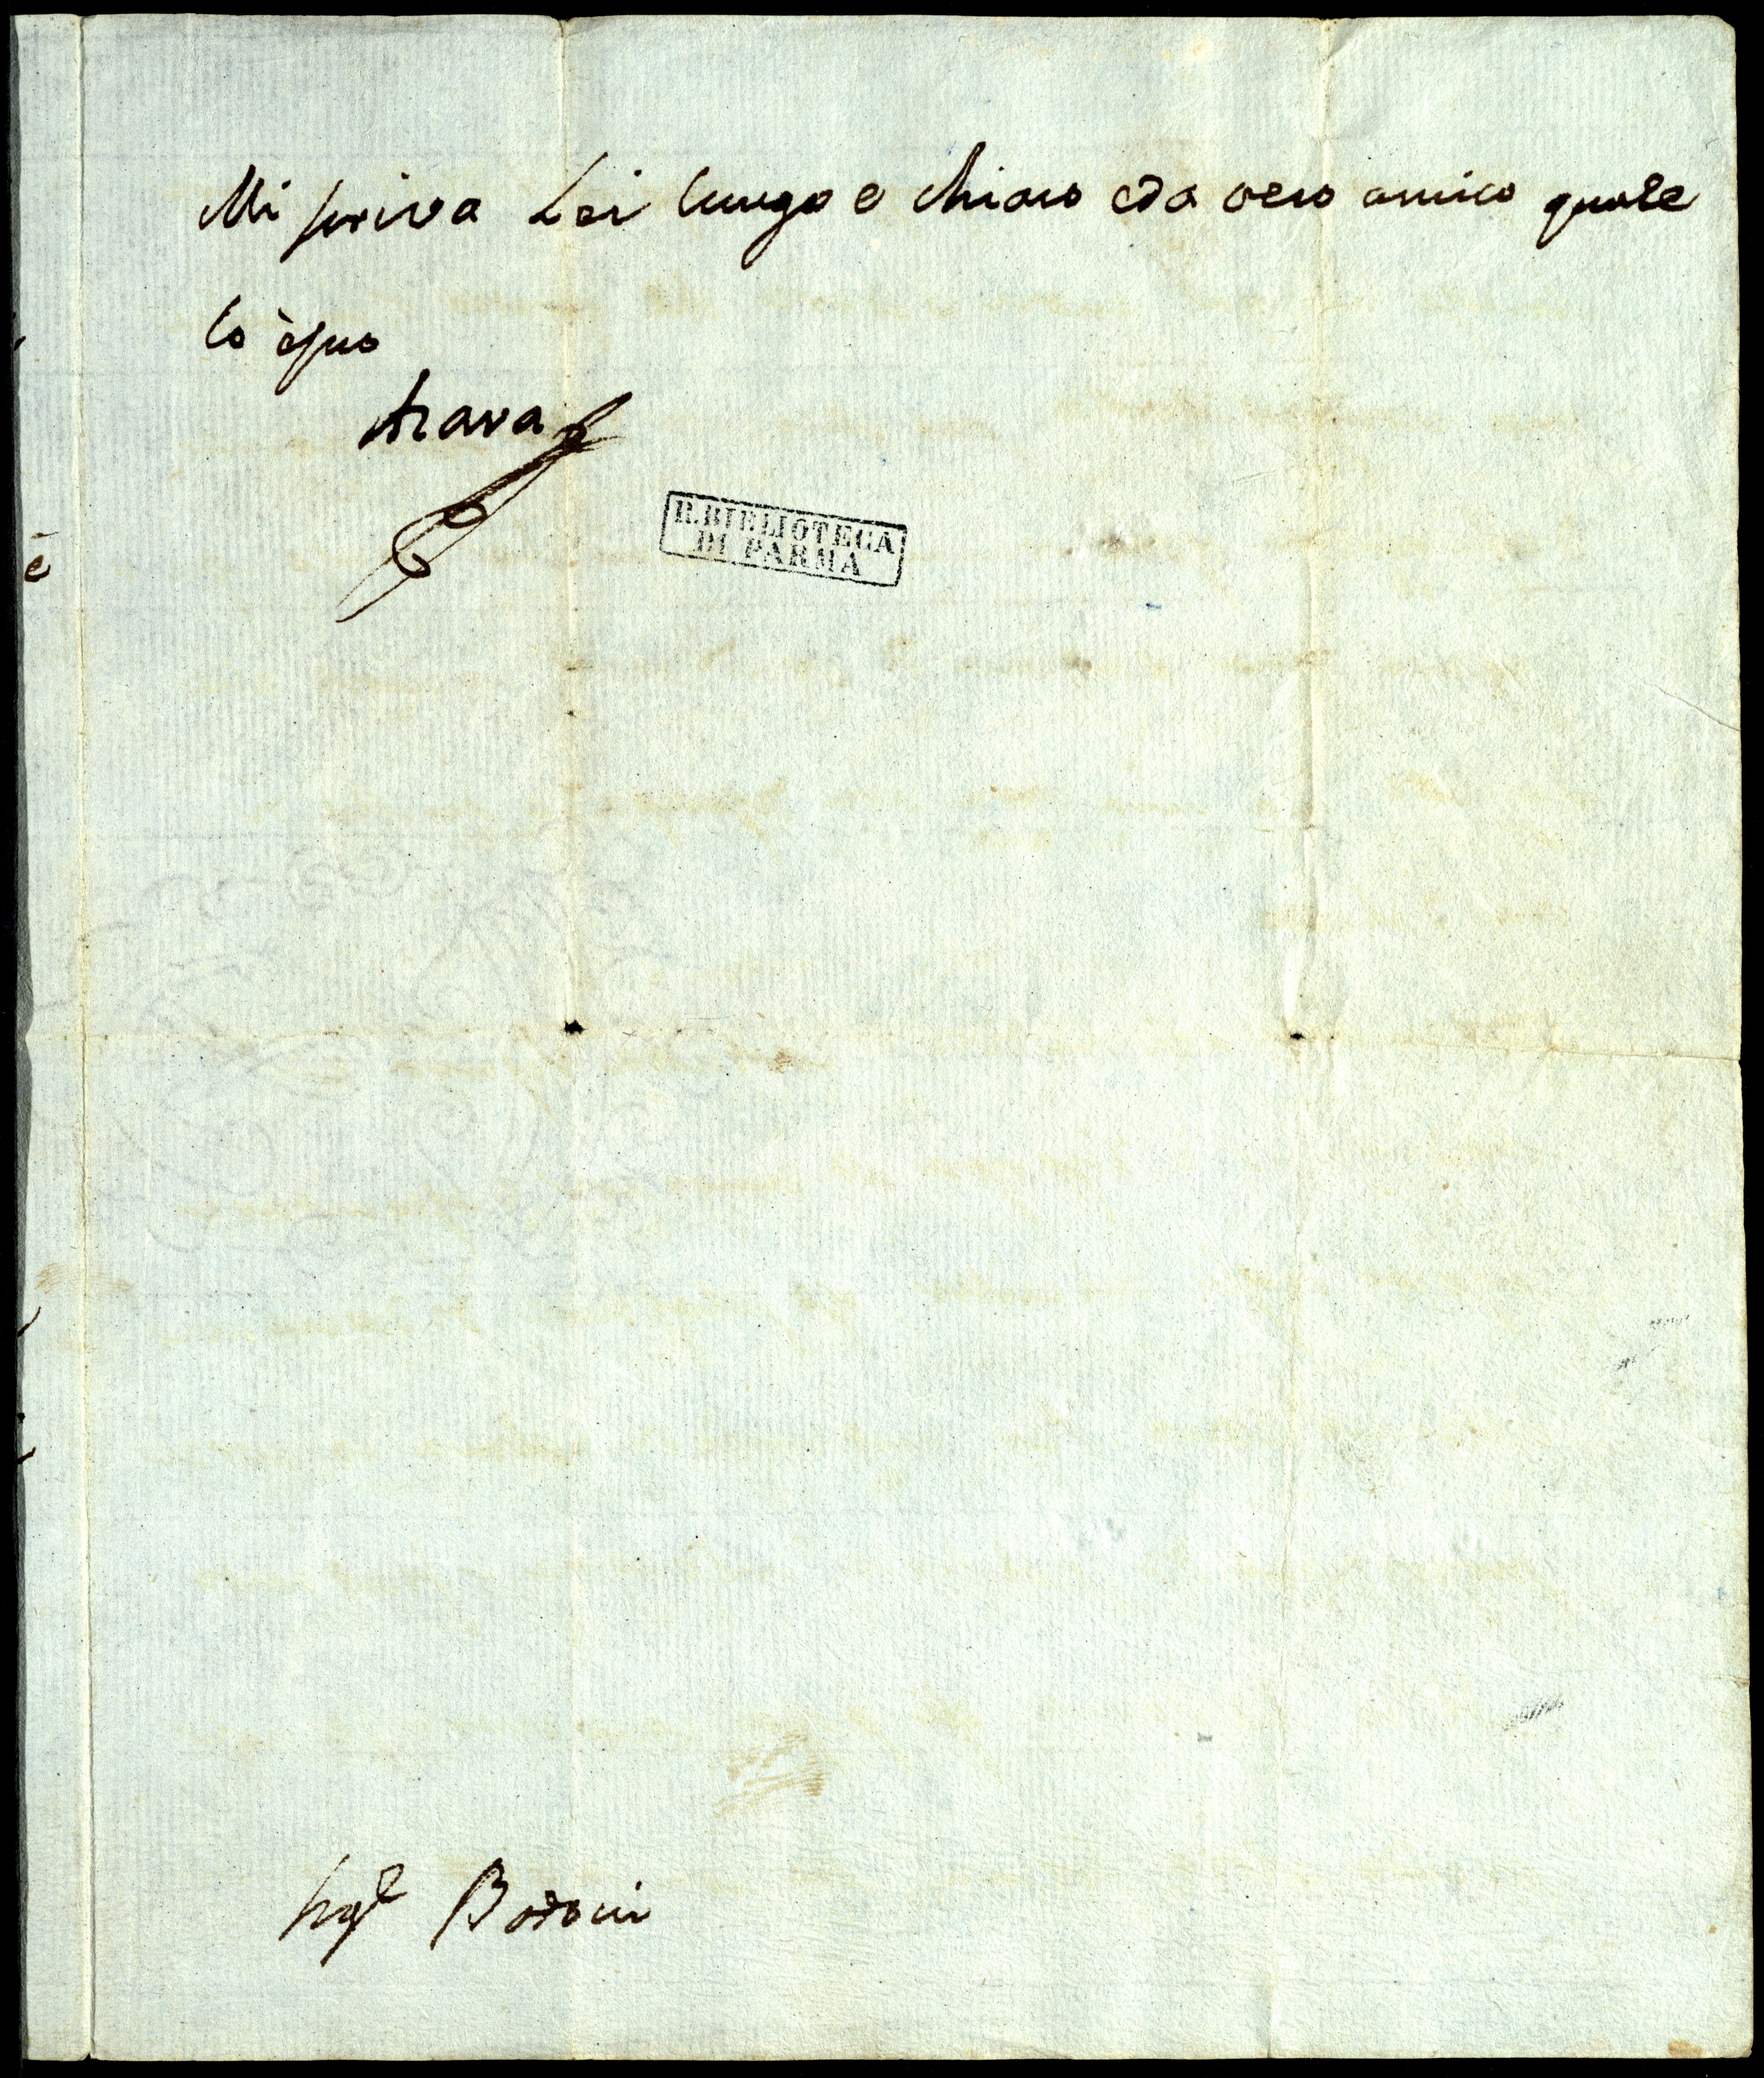 Mi scriva Lei lungo e chiaro e da vero amico quale
lo è suo
Azara
R. BIBLIOTECA
DI PARMA
è
Sigr Bodoni